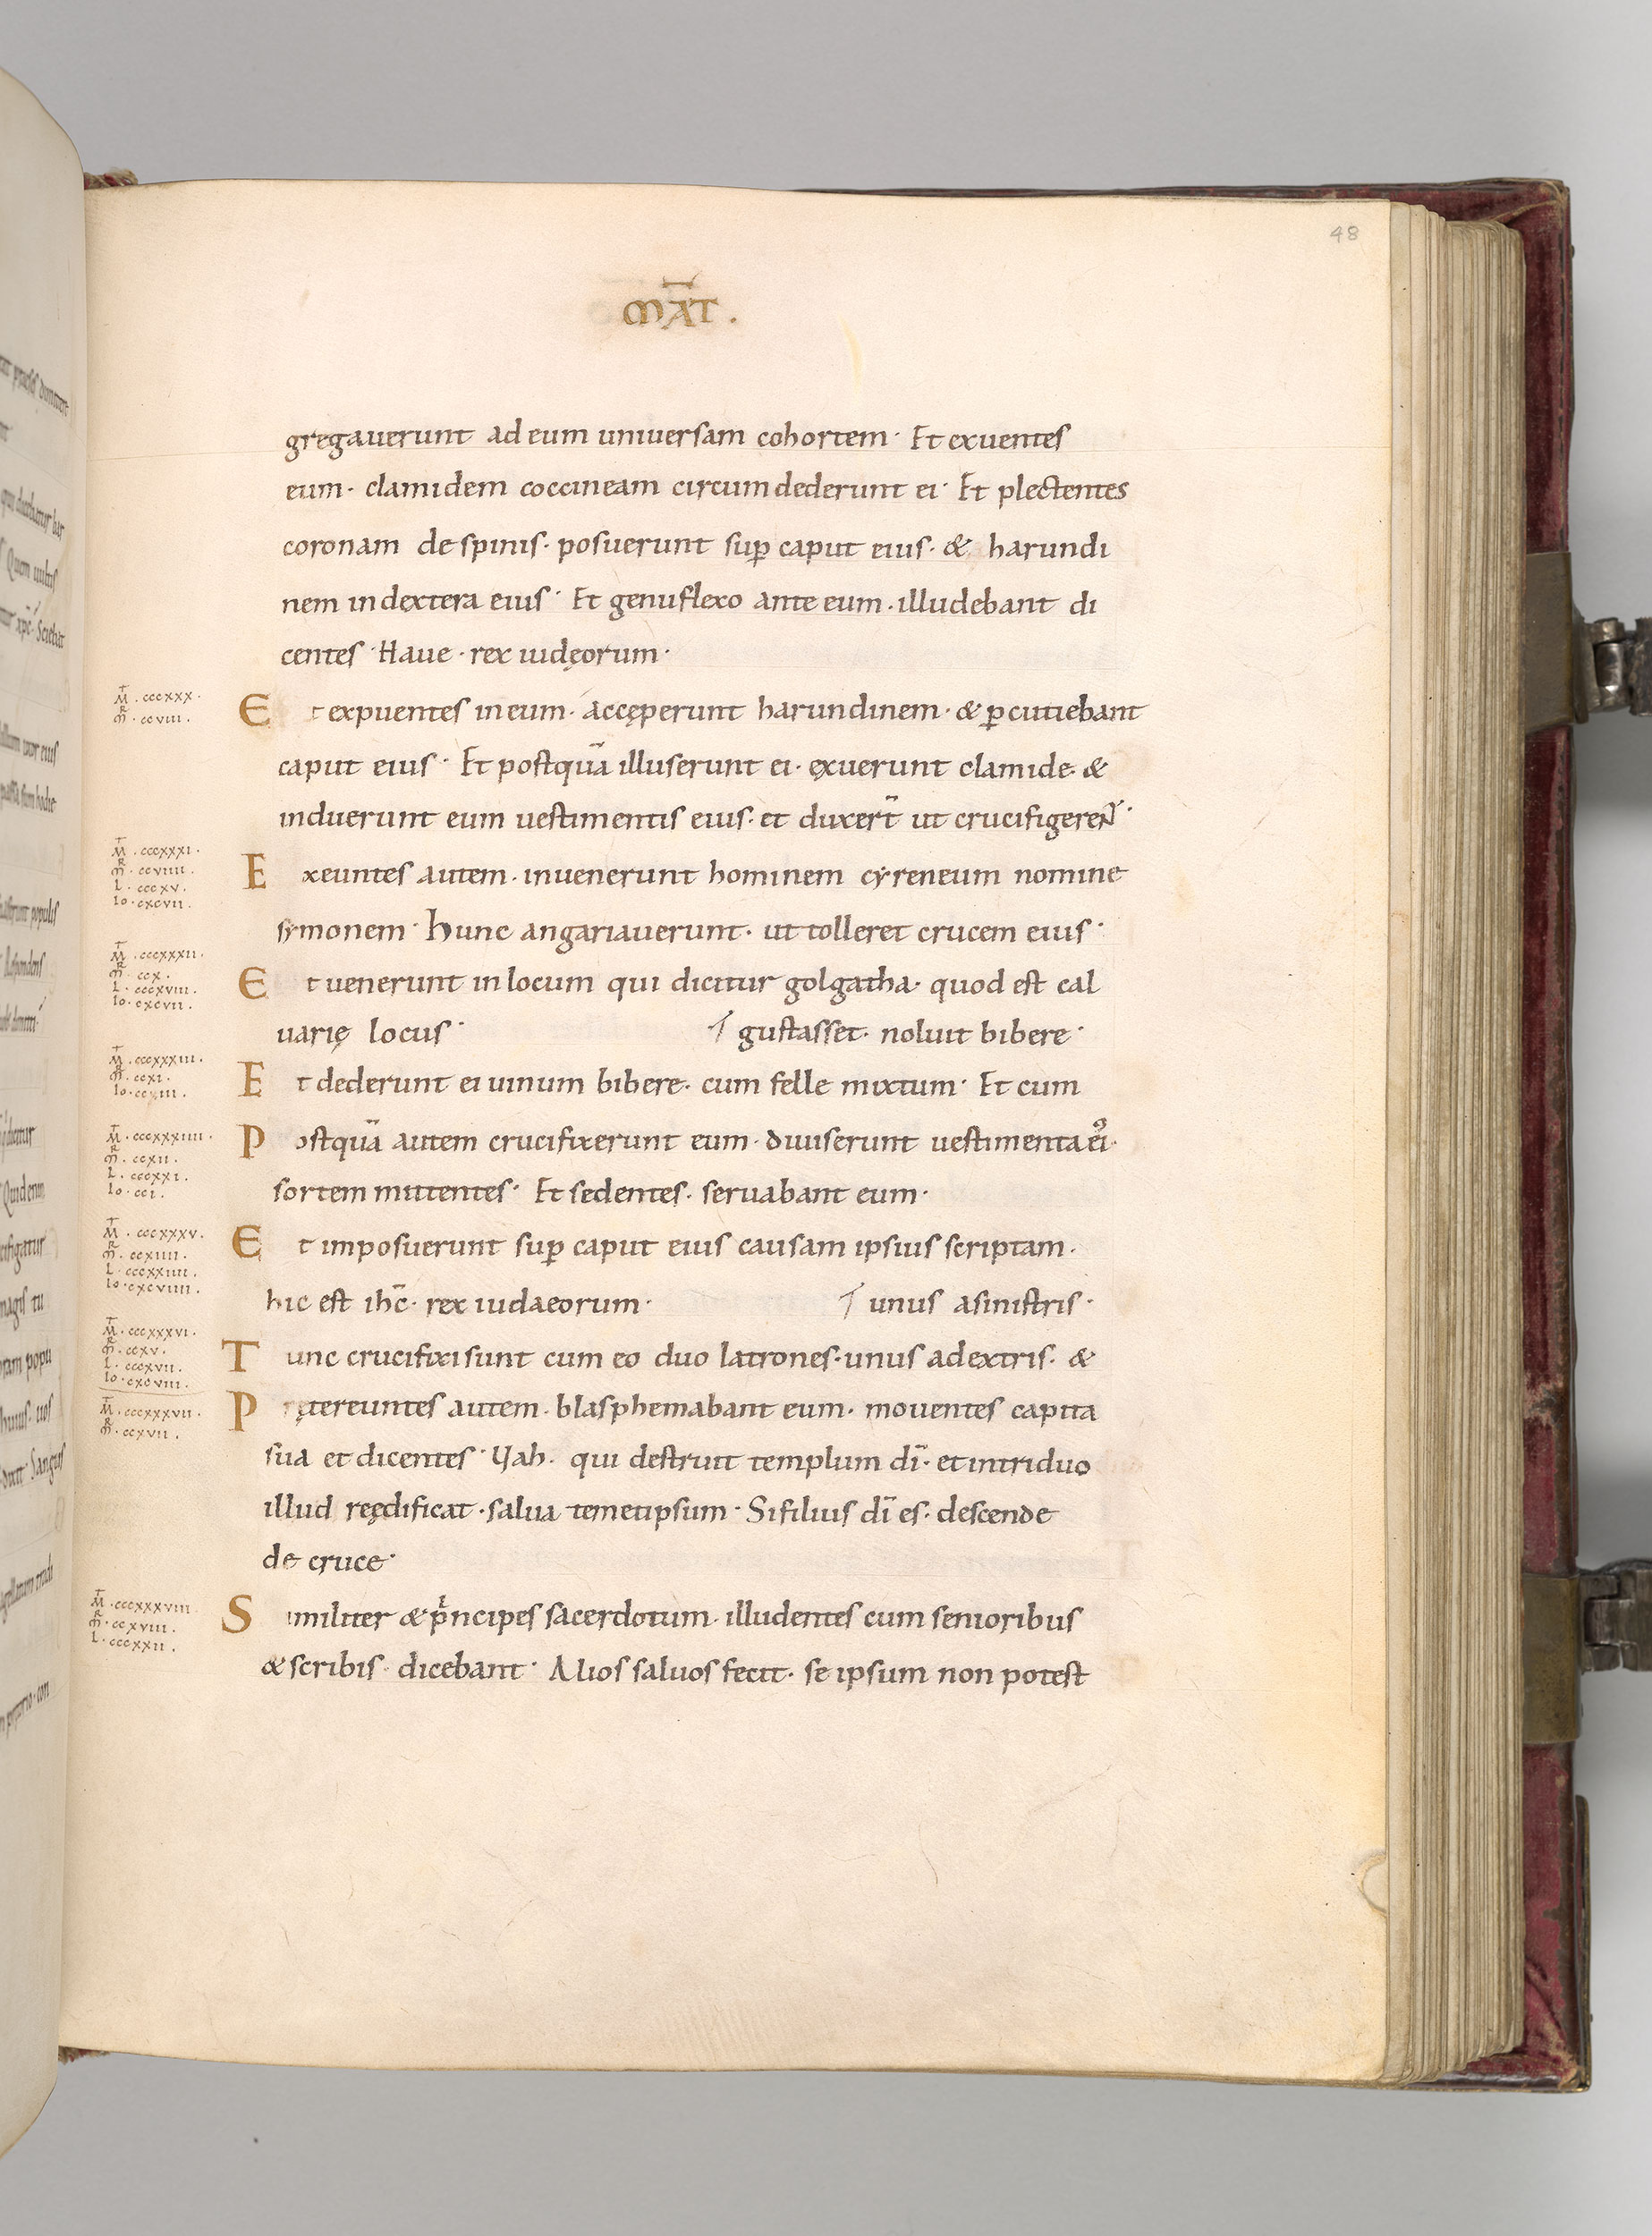 48
MAT̄.
gregauerunt ad eum uniuersam cohortem· Et exuentes
eum· clamidem coccineam circumdederunt ei· Et plectentes
coronam de spinis· posuerunt sup̄ caput eius· & harundi
nem in dextera eius· Et genuflexo ante eum· illudebant di
centes· Haue· rex iudęorum·
Et expuentes in eum· accęperunt harundinem· & p̄cutiebant
caput eius· Et postquā illuserunt ei· exuerunt clamide· &
induerunt eum uestimentis eius· et duxer̄t ut crucifigeren̄·
Exeuntes autem· inuenerunt hominem cyreneum nomine
symonem· hunc angariauerunt· ut tolleret crucem eius·
Et uenerunt in locum qui dicitur golgatha· quod est cal
uarię locus· gustasset· noluit bibere·
Et dederunt ei uinum bibere· cum felle mixtum· Et cum
Postquā autem crucifixerunt eum· diuiserunt uestimenta ei⁹·
sortem mittentes· Et sedentes· seruabant eum·
Et imposuerunt sup̄ caput eius causam ipsius scriptam·
hic est ihc̄· rex iudaeorum· unus a sinistris·
Tunc crucifixi sunt cum eo duo latrones· unus a dextris· &
Prętereuntes autem· blasphemabant eum· mouentes capita
sua et dicentes· Uah· qui destruit templum dī· et in triduo
illud reędificat· salua temetipsum· Si filius dī es· descende
de cruce·
Similiter & pⁱncipes sacerdotum· illudentes cum senioribus
& scribis· dicebant· Alios saluos fecit· se ipsum non potest
M̄T· cccxxx·
MR· ccviii·
M̄T· cccxxxi·
MR· ccviiii·
L· cccxv·
Io· cxcvii·
M̄T· cccxxxii·
MR· ccx·
L· cccxviii·
Io· cxcvii·
M̄T· cccxxxiii·
MR· ccxi·
Io· cciii·
M̄T· cccxxxiiii·
MR· ccxii·
L· cccxxi·
Io· cci·
M̄T· cccxxxv·
MR· ccxiiii·
L· cccxxiiii·
Io· cxcviiii·
M̄T· cccxxxvi·
MR· ccxv·
L· cccxvii·
Io· cxcviii·
M̄T· cccxxxvii·
MR· ccxvii·
M̄T· cccxxxviii
MR· ccxviii·
L· cccxxii·